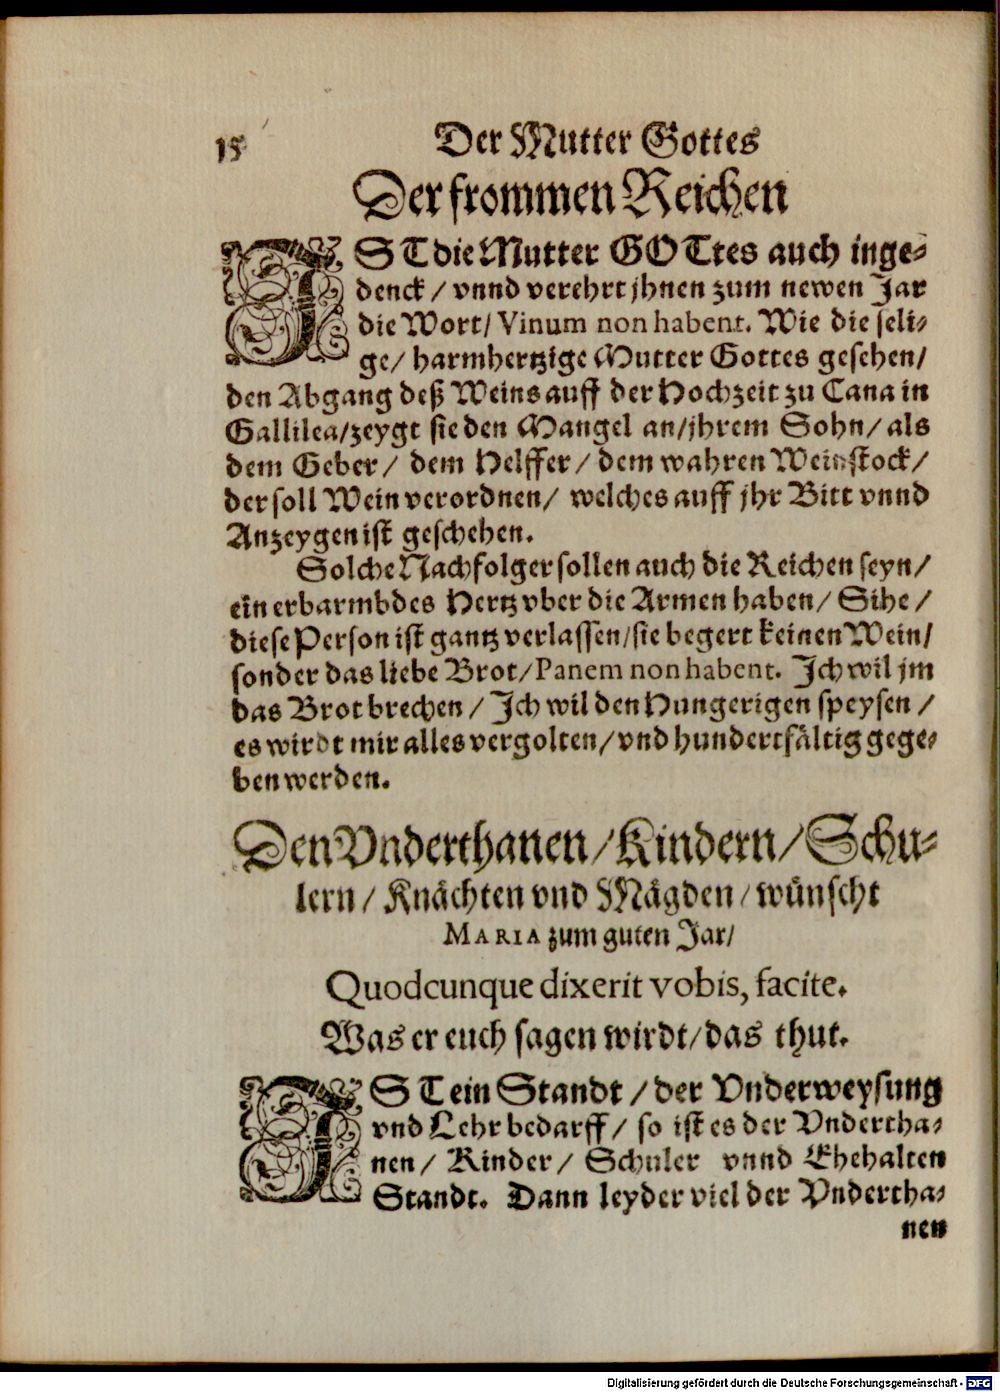 15 Der Mutter Gottes
Der frommen Reichen
IST die Mutter GOTtes auch inge-
denck / vnnd verehrt jhnen zum newen Jar
die Wort / Vinum non habent. Wie die seli-
ge / harmhertzige Mutter Gottes gesehen /
den Abgang deß Weins auff der Hochzeit zu Cana in
Gallilea / zeygt sie den Mangel an / jhrem Sohn / als
dem Geber / dem Helffer / dem wahren Weinstock /
der soll Wein verordnen / welches auff jhr Bitt vnnd
Anzeygen ist geschehen.
Solche Nachfolger sollen auch die Reichen seyn /
ein erbarmbdes Hertz vber die Armen haben / Sihe /
diese Person ist gantz verlassen / sie begert keinen Wein /
sonder das liebe Brot / Panem non habent. Ich wil jm
das Brot brechen / Ich wil den Hungerigen speysen /
es wirdt mir alles vergolten / vnd hundertfältig gege-
ben werden.
Den Vnderthanen / Kindern / Schu-
lern / Knächten vnd Mägden / wünscht
MARIA zum guten Jar /
Quodcunque dixerit vobis, facite.
Was er euch sagen wirdt / das thut.
IST ein Standt / der Vnderweysung
vnd Lehr bedarff / so ist es der Vndertha-
nen / Kinder / Schuler vnnd Ehehalten
Standt. Dann leyder viel der Vndertha-
nen
Digitalisierung gefördert durch die Deutsche Forschungsgemeinschaft - DFG